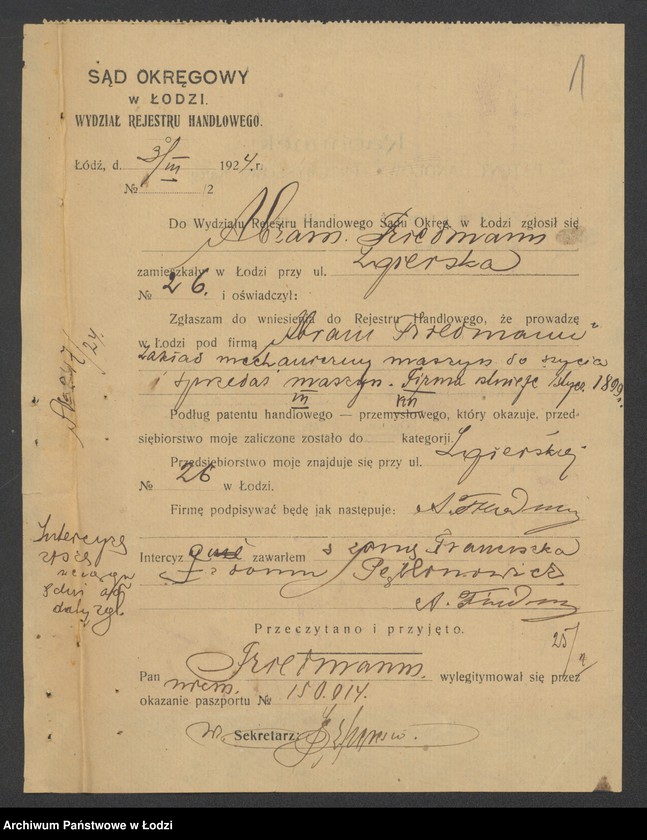 1
SĄD OKRĘGOWY
w ŁODZI.
WYDZIAŁ REJESTRU HANDLOWEGO.
Łódź, d. 3/III 1924 r.
№ /2
Do Wydziału Rejestru Handlowego Sądu Okręg. w Łodzi zgłosił się
Abram Friedmann
zamieszkały w Łodzi przy ul. Zgierska
№ 26. i oświadczył:
Zgłaszam do wniesienia do Rejestru Handlowego, że prowadzę
w Łodzi pod firmą „Abram Friedmann"
Zakład mechaniczny maszyn do szycia
i sprzedaż maszyn. Firma istnieje 1899
III
Podług patentu handlowego — przemysłowego, który okazuje, przed-
siębiorstwo moje zaliczone zostało do kategorji.
Przedsiębiorstwo moje znajduje się przy ul. Zgierskiej
№ 26 w Łodzi.
Firmę podpisywać będę jak następuje: A. Friedmann
Intercyz zawarłem z żoną Franciszką
z domu
A. Friedmann
Przeczytano i przyjęto.
25/
Pan Friedmann. wylegitymował się przez
okazanie paszportu № niem. 150.014.
w. Sekretarz:
Intercyzę
Archiwum Państwowe w Łodzi